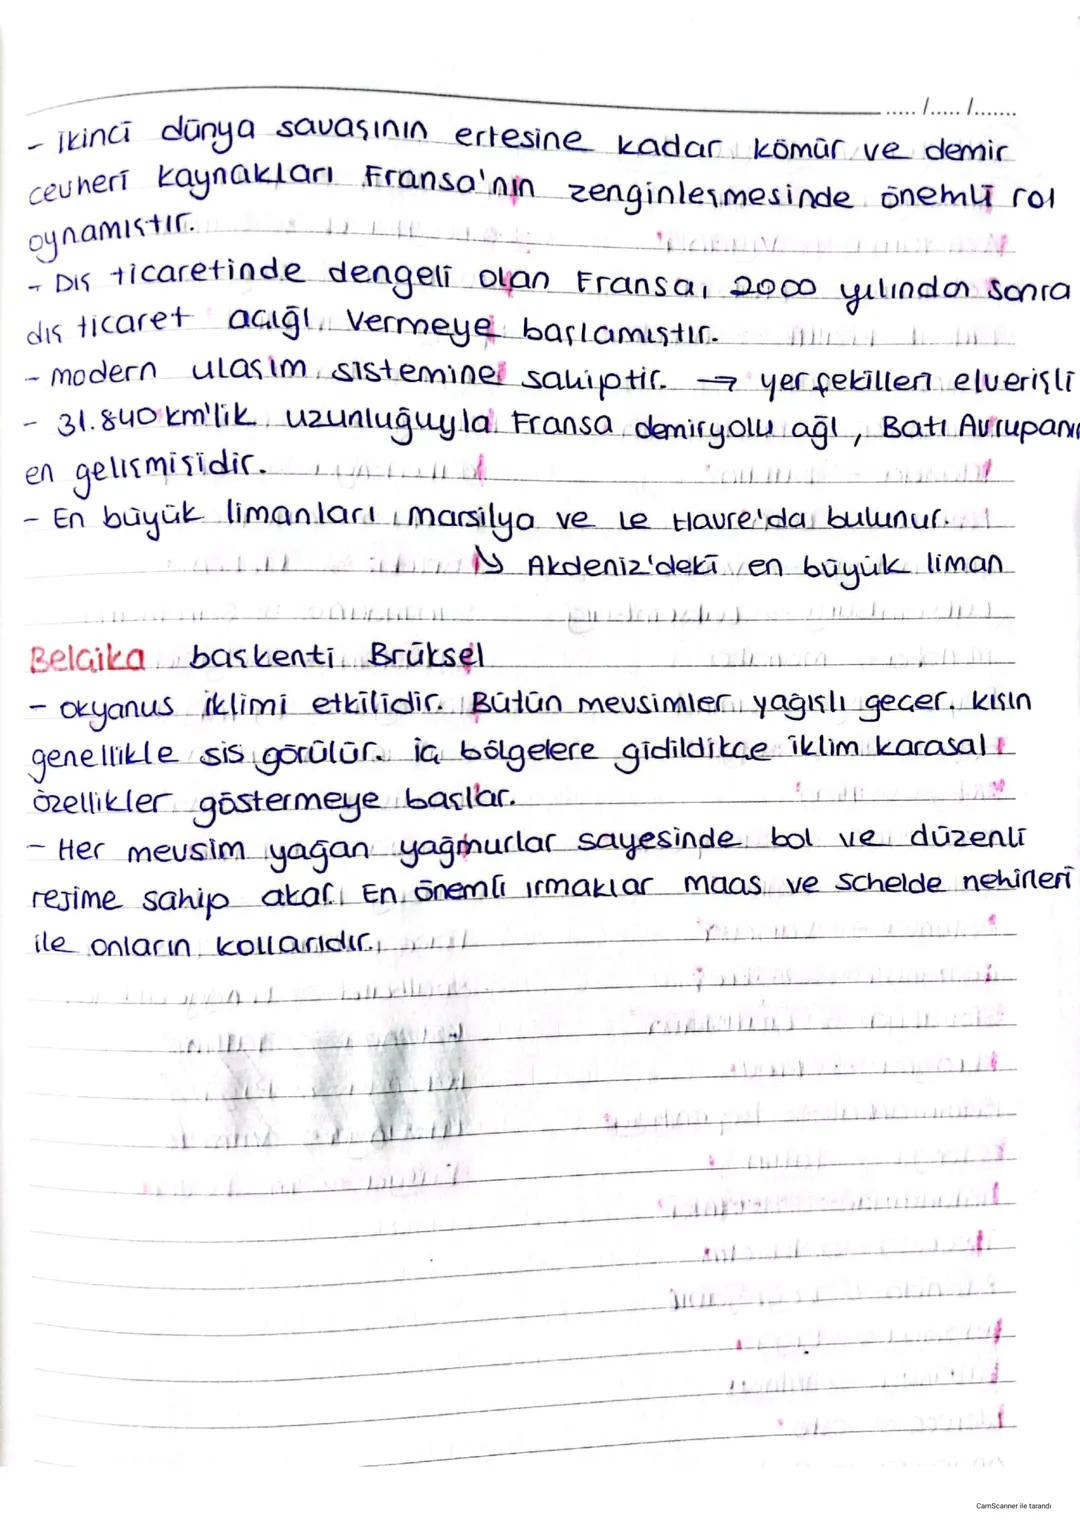 ...../...../.......
- ikinci dünya savaşının ertesine kadar kömür ve demir
cevheri kaynakları Fransa'nın zenginleşmesinde önemli rol
oynamıştır.
- Dış ticaretinde dengeli olan Fransa, 2000 yılından sonra
dış ticaret açığı vermeye başlamıştır.
- modern ulaşım sistemine sahiptir. → yer şekilleri elverişli
- 31.840 km'lik uzunluğuyla Fransa demiryolu ağı, Batı Avrupanın
en gelişmişidir.
- En büyük limanları marsilya ve Le Havre'da bulunur.
↳ Akdeniz'deki en büyük liman
Belçika başkenti Brüksel
- okyanus iklimi etkilidir. Bütün mevsimler yağışlı geçer, kışın
genellikle sis görülür. iç bölgelere gidildikçe iklim karasal
özellikler göstermeye başlar.
- Her mevsim yağan yağmurlar sayesinde bol ve düzenli
rejime sahip akar. En önemli ırmaklar maas ve Schelde nehirleri
ile onların kollarıdır.
CamScanner ile tarandı